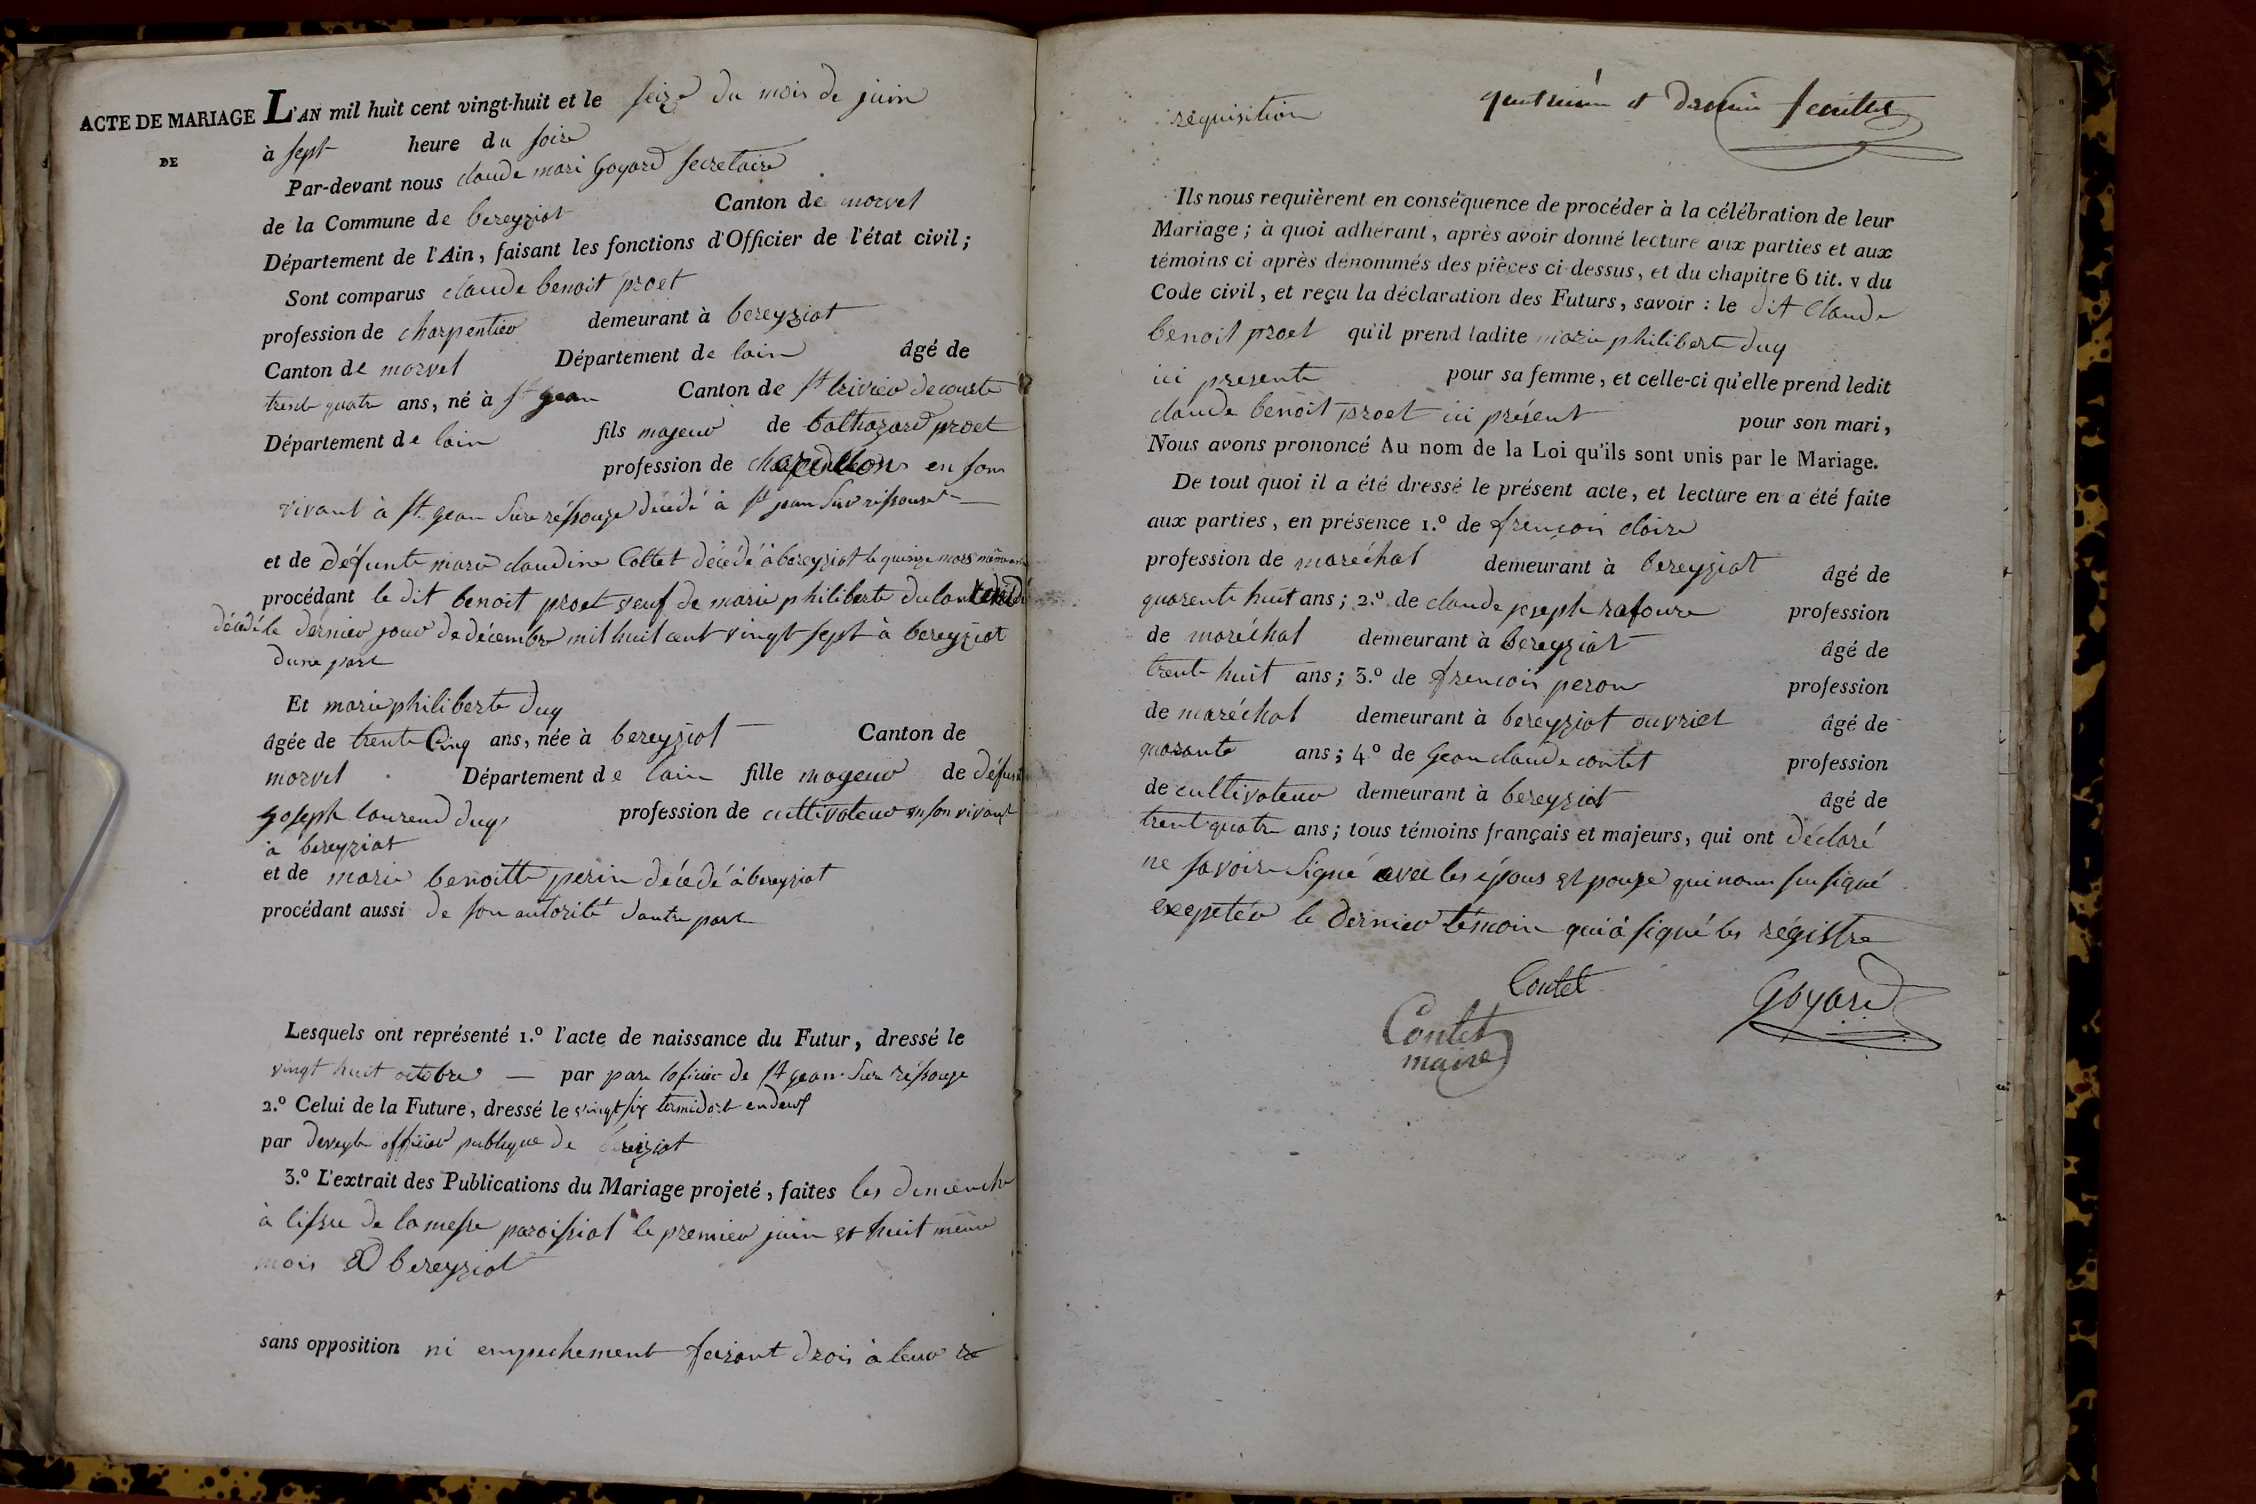 ACTE DE MARIAGE
DE
L'AN mil huit cent vingt-huit et le seize du mois de juin
à sept heure du soire
Par-devant nous claude mari Goyard secretaire
de la Commune de bereyziat Canton de morvel
Département de l'Ain, faisant les fonctions d'Officier de l'état civil;
Sont comparus claude benoit proet
profession de charpentier demeurant à bereyziat
Canton de morvel Département de lain âgé de
trent quatr ans, né à St gean Canton de St trivier de courte
Département de lain fils majeur de balthazard proet
profession de en son
vivant à St gean Sure réssouze décédé à St jean Sur
et de défunte marie claudine Coltet décédé à bereyziat le quinze mars
procédant le dit benoit proet veuf de marie philiberte
décédé le dernier jour de décembre mil huit cent vingt sept à bereyziat
dune part
Et marie philiberte duy
âgée de trente Cinq ans, née à bereyziat Canton de
morvel Département de lain fille mageur de défunt
Joseph laurend duy profession de cultivateur en son vivant
à bereyziat
et de marie benoitte perin décédé à bereyziat
procédant aussi de son autorité dautre part
Lesquels ont représenté 1.º l'acte de naissance du Futur, dressé le
vingt huit octobre — par par loficier de St gean Sure réssouze
2.º Celui de la Future, dressé le vingt six
par officier publique de
3.º L'extrait des Publications du Mariage projeté, faites les dimenche
à lissue de la messe paroissial le premier juin et huit même
mois bereyziat
sans opposition ni empechement feizant drois à leur re
requisition
quatriéme et dernier feuillet
Ils nous requièrent en conséquence de procéder à la célébration de leur
Mariage; à quoi adhérant, après avoir donné lecture aux parties et aux
témoins ci après dénommés des pièces ci-dessus, et du chapitre 6 tit. v du
Code civil, et reçu la déclaration des Futurs, savoir : le dit Claude
benoit proet qu'il prend ladite marie philiberte duy
ici presente pour sa femme, et celle-ci qu'elle prend ledit
claude benoit proet ici présent pour son mari,
Nous avons prononcé Au nom de la Loi qu'ils sont unis par le Mariage.
De tout quoi il a été dressé le présent acte, et lecture en a été faite
aux parties, en présence 1.º de françois claire
profession de maréchal demeurant à bereyziat âgé de
quarente huit ans; 2.º de claude joseph rafoure profession
de maréchal demeurant à bereyziat âgé de
trente huit ans; 3.º de frencois peron profession
de maréchal demeurant à bereyziat ouvrier âgé de
quarante ans; 4.º de gean claude contet profession
de cultivateur demeurant à bereyziat âgé de
trent quatre ans; tous témoins français et majeurs, qui ont déclaré
ne savoir Signé avec les époux et pouze qui
exepetér le dernier témoin qui à signé les régistre
Contet
Contet
maire
Goyard